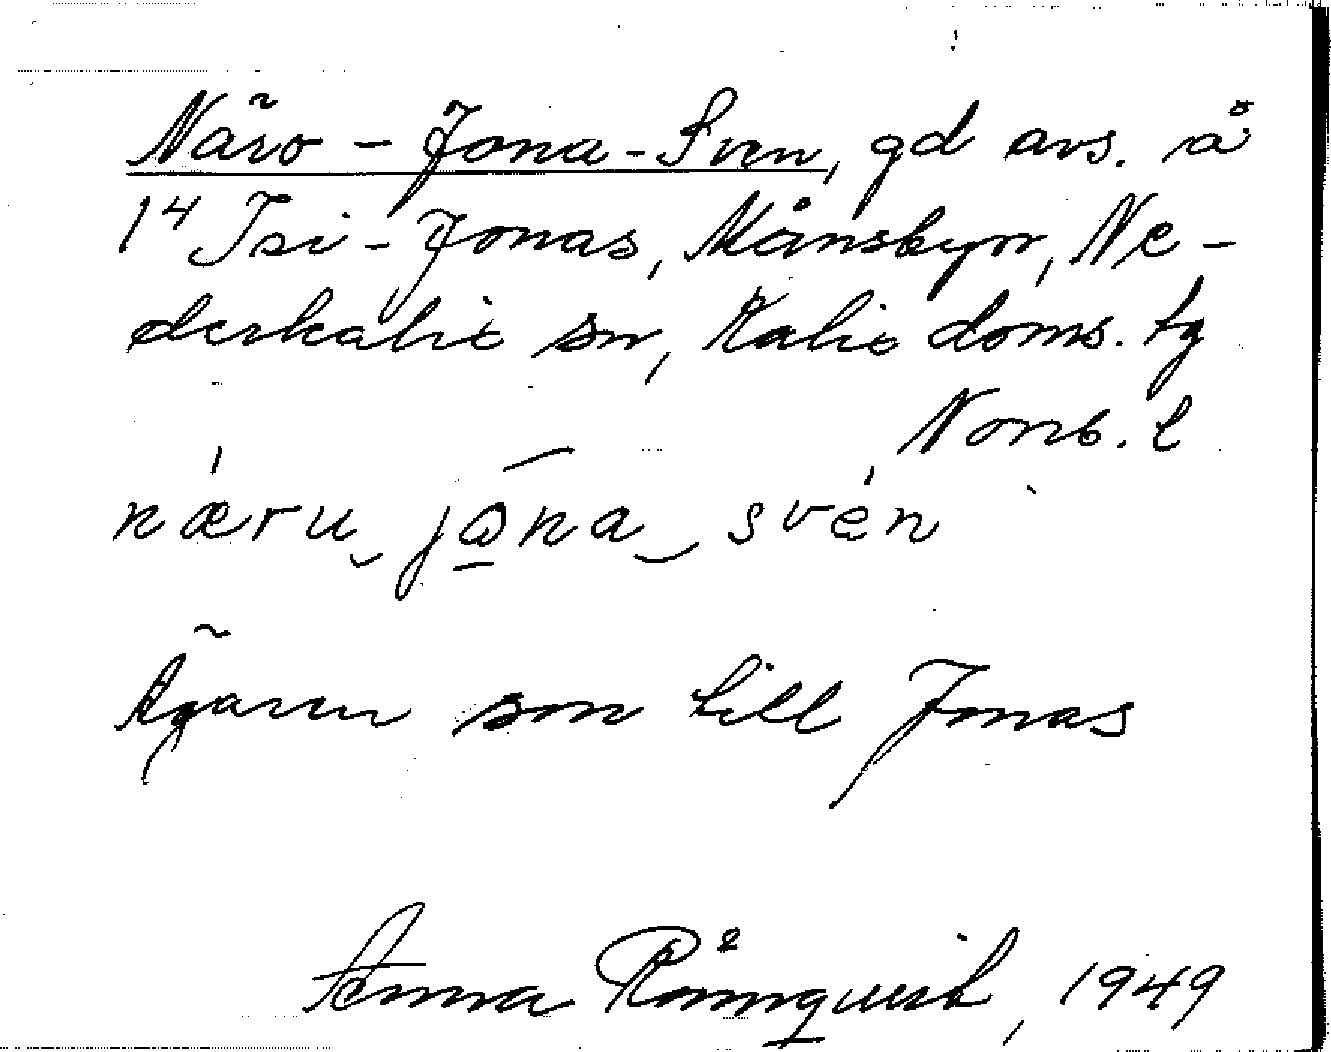 Näro-Jona-Sven, gd avs. å
1⁴ Isi-Jonas, Månsbyn, Ne-
derkalix sn, Kalix doms. tg
Norrb. l
næru jona svén
Ägaren son till Jonas
Anna Rönnquist, 1949